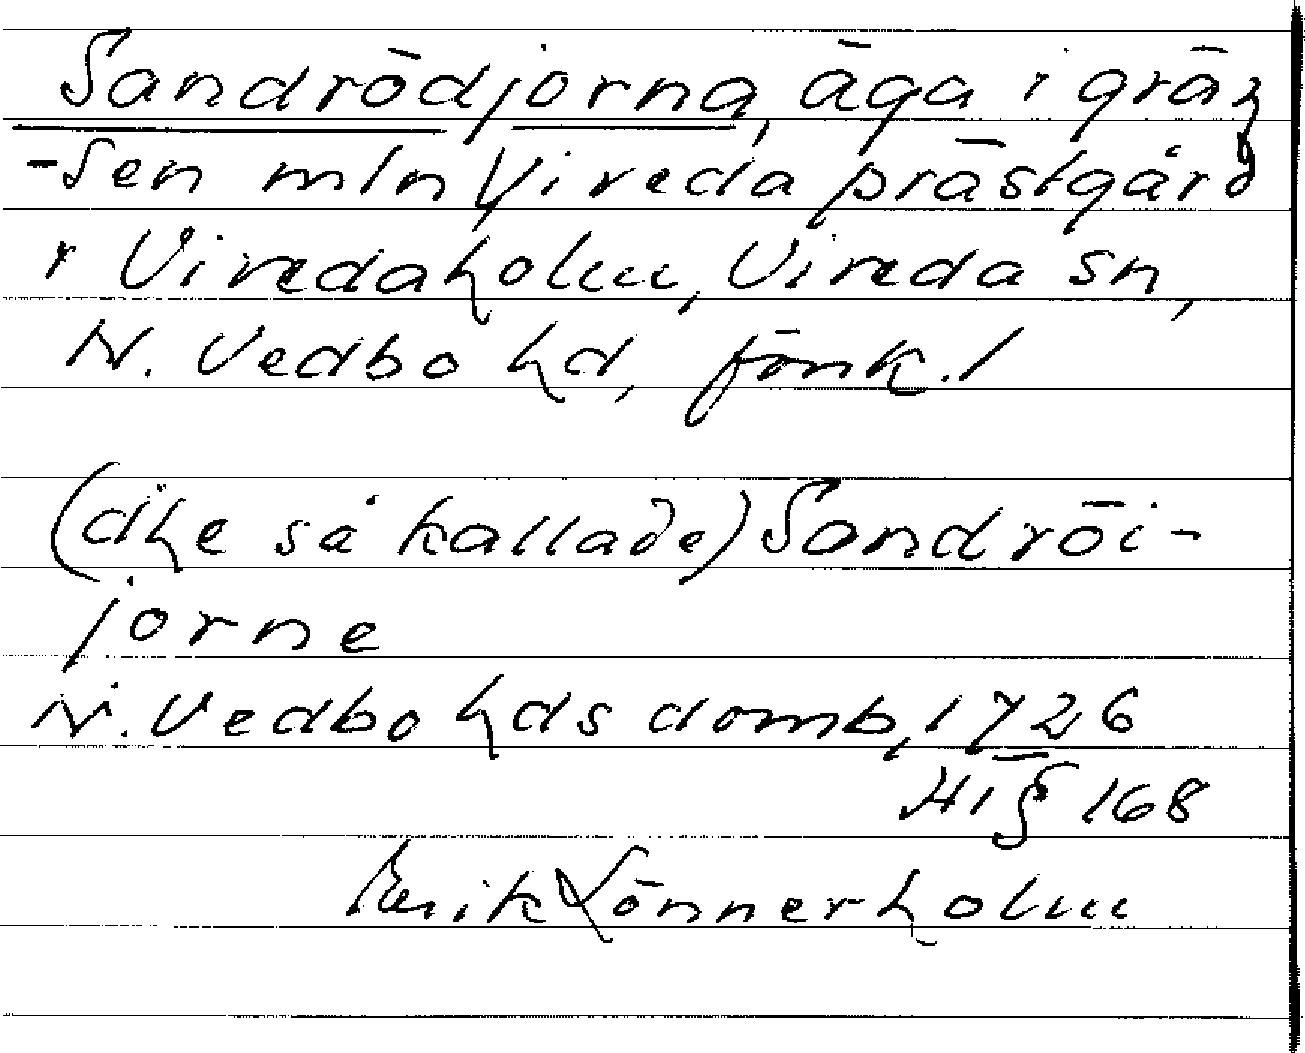 Sandrödjorna, äga i gräz
-sen mln Vireda prästgård
r Viredaholm, Vireda sn,
N. Vedbo hd, fönk. l
(dhe så kallade) Sandröi-
jorne
N. Vedbo hds domb, 1726
HI § 168
Erik Lönnerholm